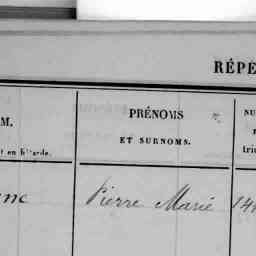 RÉPE
M. PRÉNOMS NU
ET SURNOMS.
et en bâtarde. tri
Pierre Marie 14